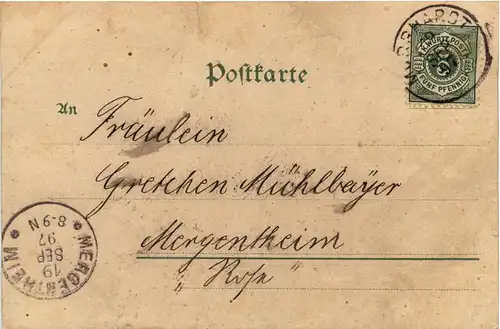 K. WÜRTT. POST
FÜNF PFENNIG
Postkarte
An
Fräulein
Gretchen Mühlbayer
Mergentheim
"Rose"
MERGENTHEIM
19
SEP
97
8-9 N